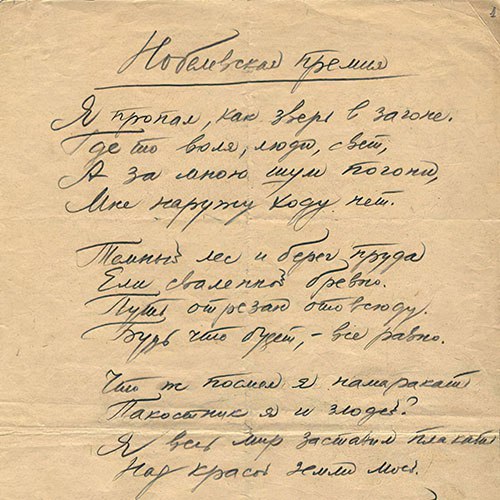 Нобелевская премия
Я пропал, как зверь в загоне.
Где то воля, люди, свет,
А за мною шум погони,
Мне наружу ходу нет.
Темный лес и берег пруда
Ели сваленной бревно.
Путь отрезан отовсюду.
Будь что будет, – все равно.
Что ж посмел я намаракать
Пакостник я и злодей?
Я весь мир заставил плакать
Над красой земли моей.